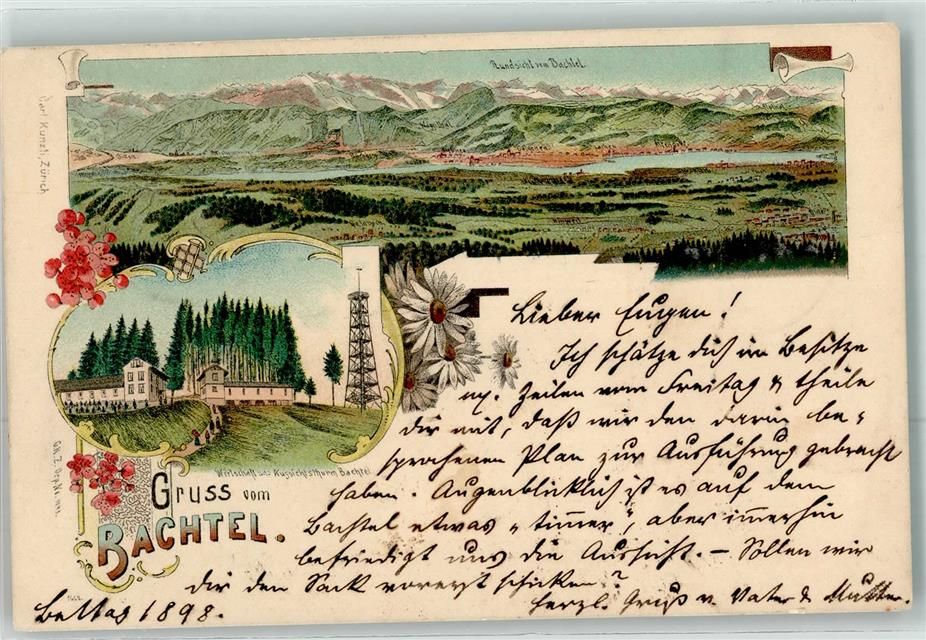 Rundsicht vom Bachtel.
Carl Künzli, Zürich
Wirtschaft und Aussichtsthurm Bachtel
Gruss vom
BACHTEL.
Lieber Eugen!
Ich schätze dich im Besitze
m. Zeilen vom Freitag & theile
dir mit, daß wir den darin be-
sprochenen Plan zur Ausführung gebracht
haben. Augenblicklich ist es auf dem
Bachtel etwas "timmer", aber immerhin
befriedigt uns die Aussicht. – Sollen wir
dir den Sack vorerst schicken?
herzl. Gruß v. Vater & Mutter.
Bettag 1898.